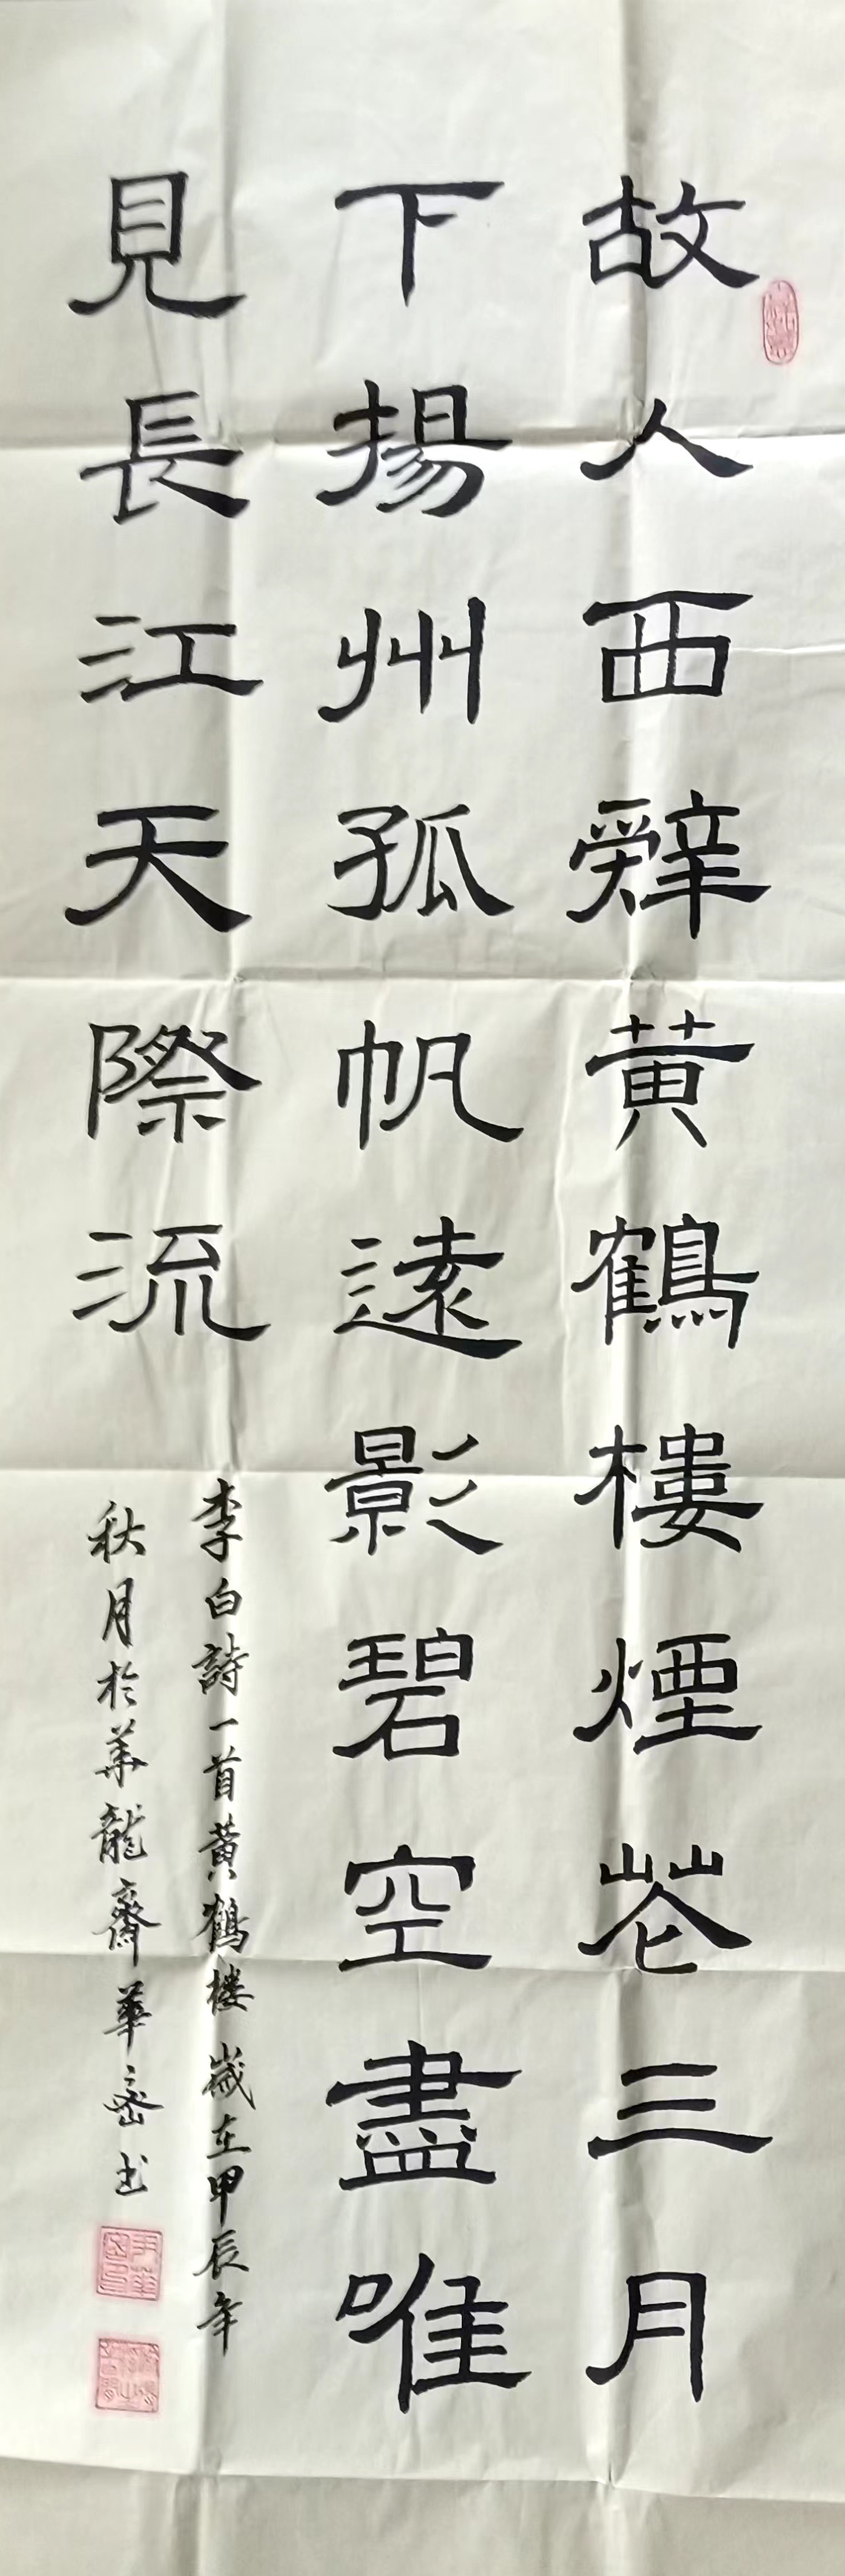 故人西辤黄鶴樓煙花三月
下揚州孤帆遠影碧空盡唯
見長江天際流
李白詩一首黄鶴楼歲在甲辰年
秋月於華龍齋華密书